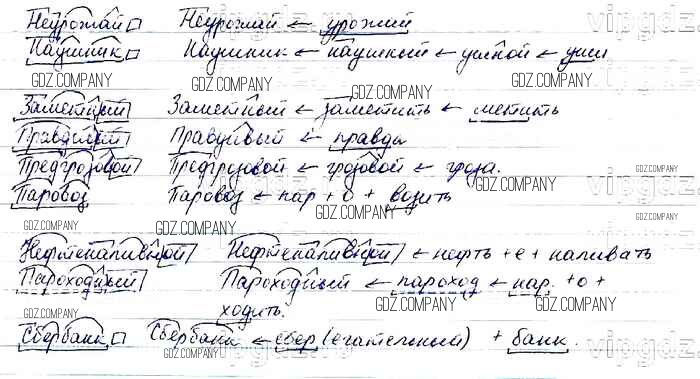 Неурожай Неурожай ← урожай
Наушник Наушник ← наушный ← ушной ← уши
GDZ.COMPANY GDZ.COMPANY GDZ.COMPANY GDZ.COMPANY
Заметный Заметный ← заметить ← метить
Правдивый Правдивый ← правда
Предгрозовой Предгрозовой ← грозовой ← гроза.
Паровоз Паровоз ← пар + о + возить
GDZ.COMPANY GDZ.COMPANY GDZ.COMPANY GDZ.COMPANY
Нефтеналивной Нефтеналивной ← нефть + е + наливать
Пароходный Пароходный ← пароход ← пар + о +
GDZ.COMPANY GDZ.COMPANY GDZ.COMPANY GDZ.COMPANY
ходить.
Сбербанк Сбербанк ← сбер (егательный) + банк.
GDZ.COMPANY GDZ.COMPANY
vipgdz